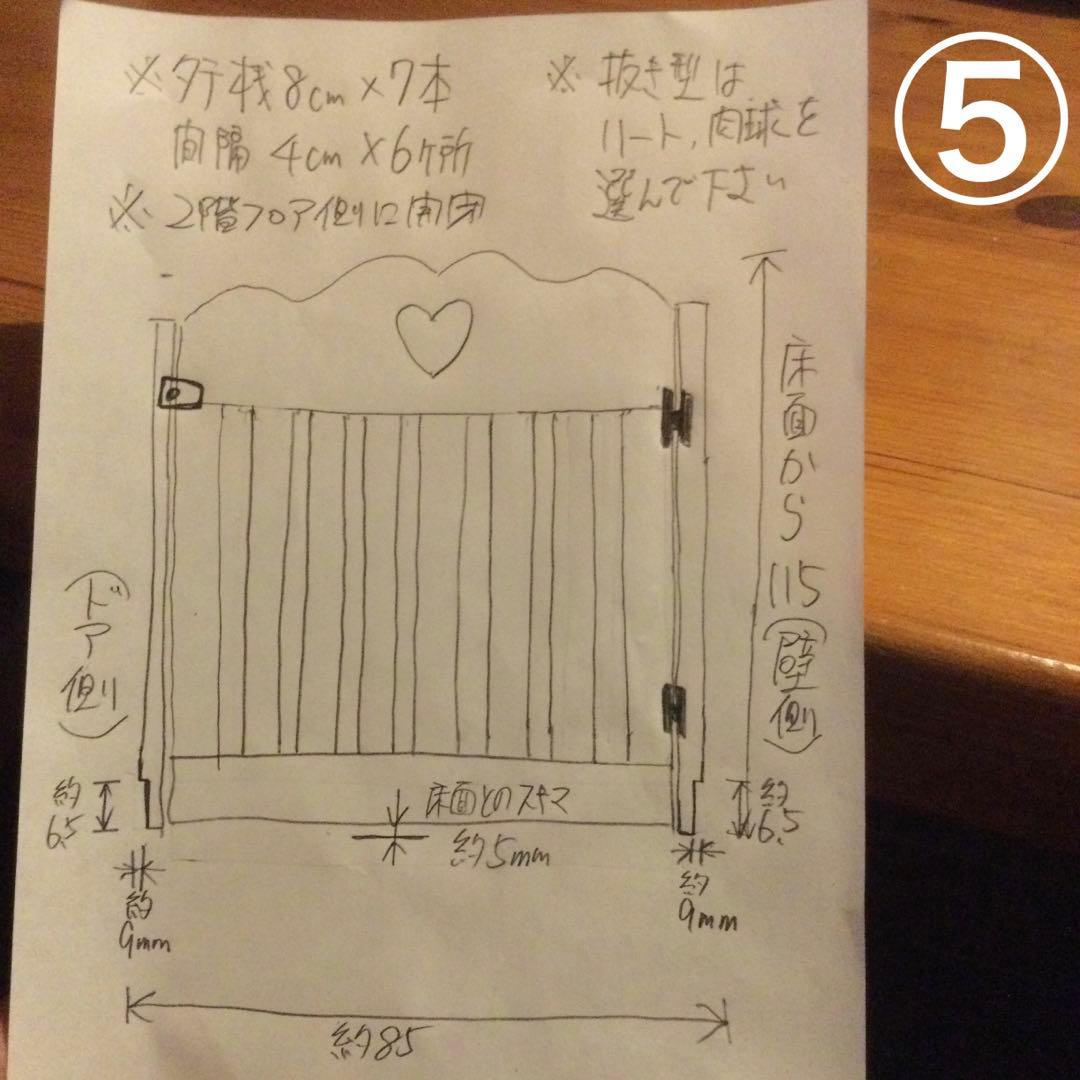 ⑤
※ タテ桟 8cm×7本
間隔 4cm×6ヶ所
※ 2階フロア側に開閉
※ 抜き型は
ハート、肉球を
選んで下さい
床面から115(壁側)
(ドア側)
約
6.5
床面とのスキマ
約5mm
約
6.5
約
9mm
約
9mm
約85